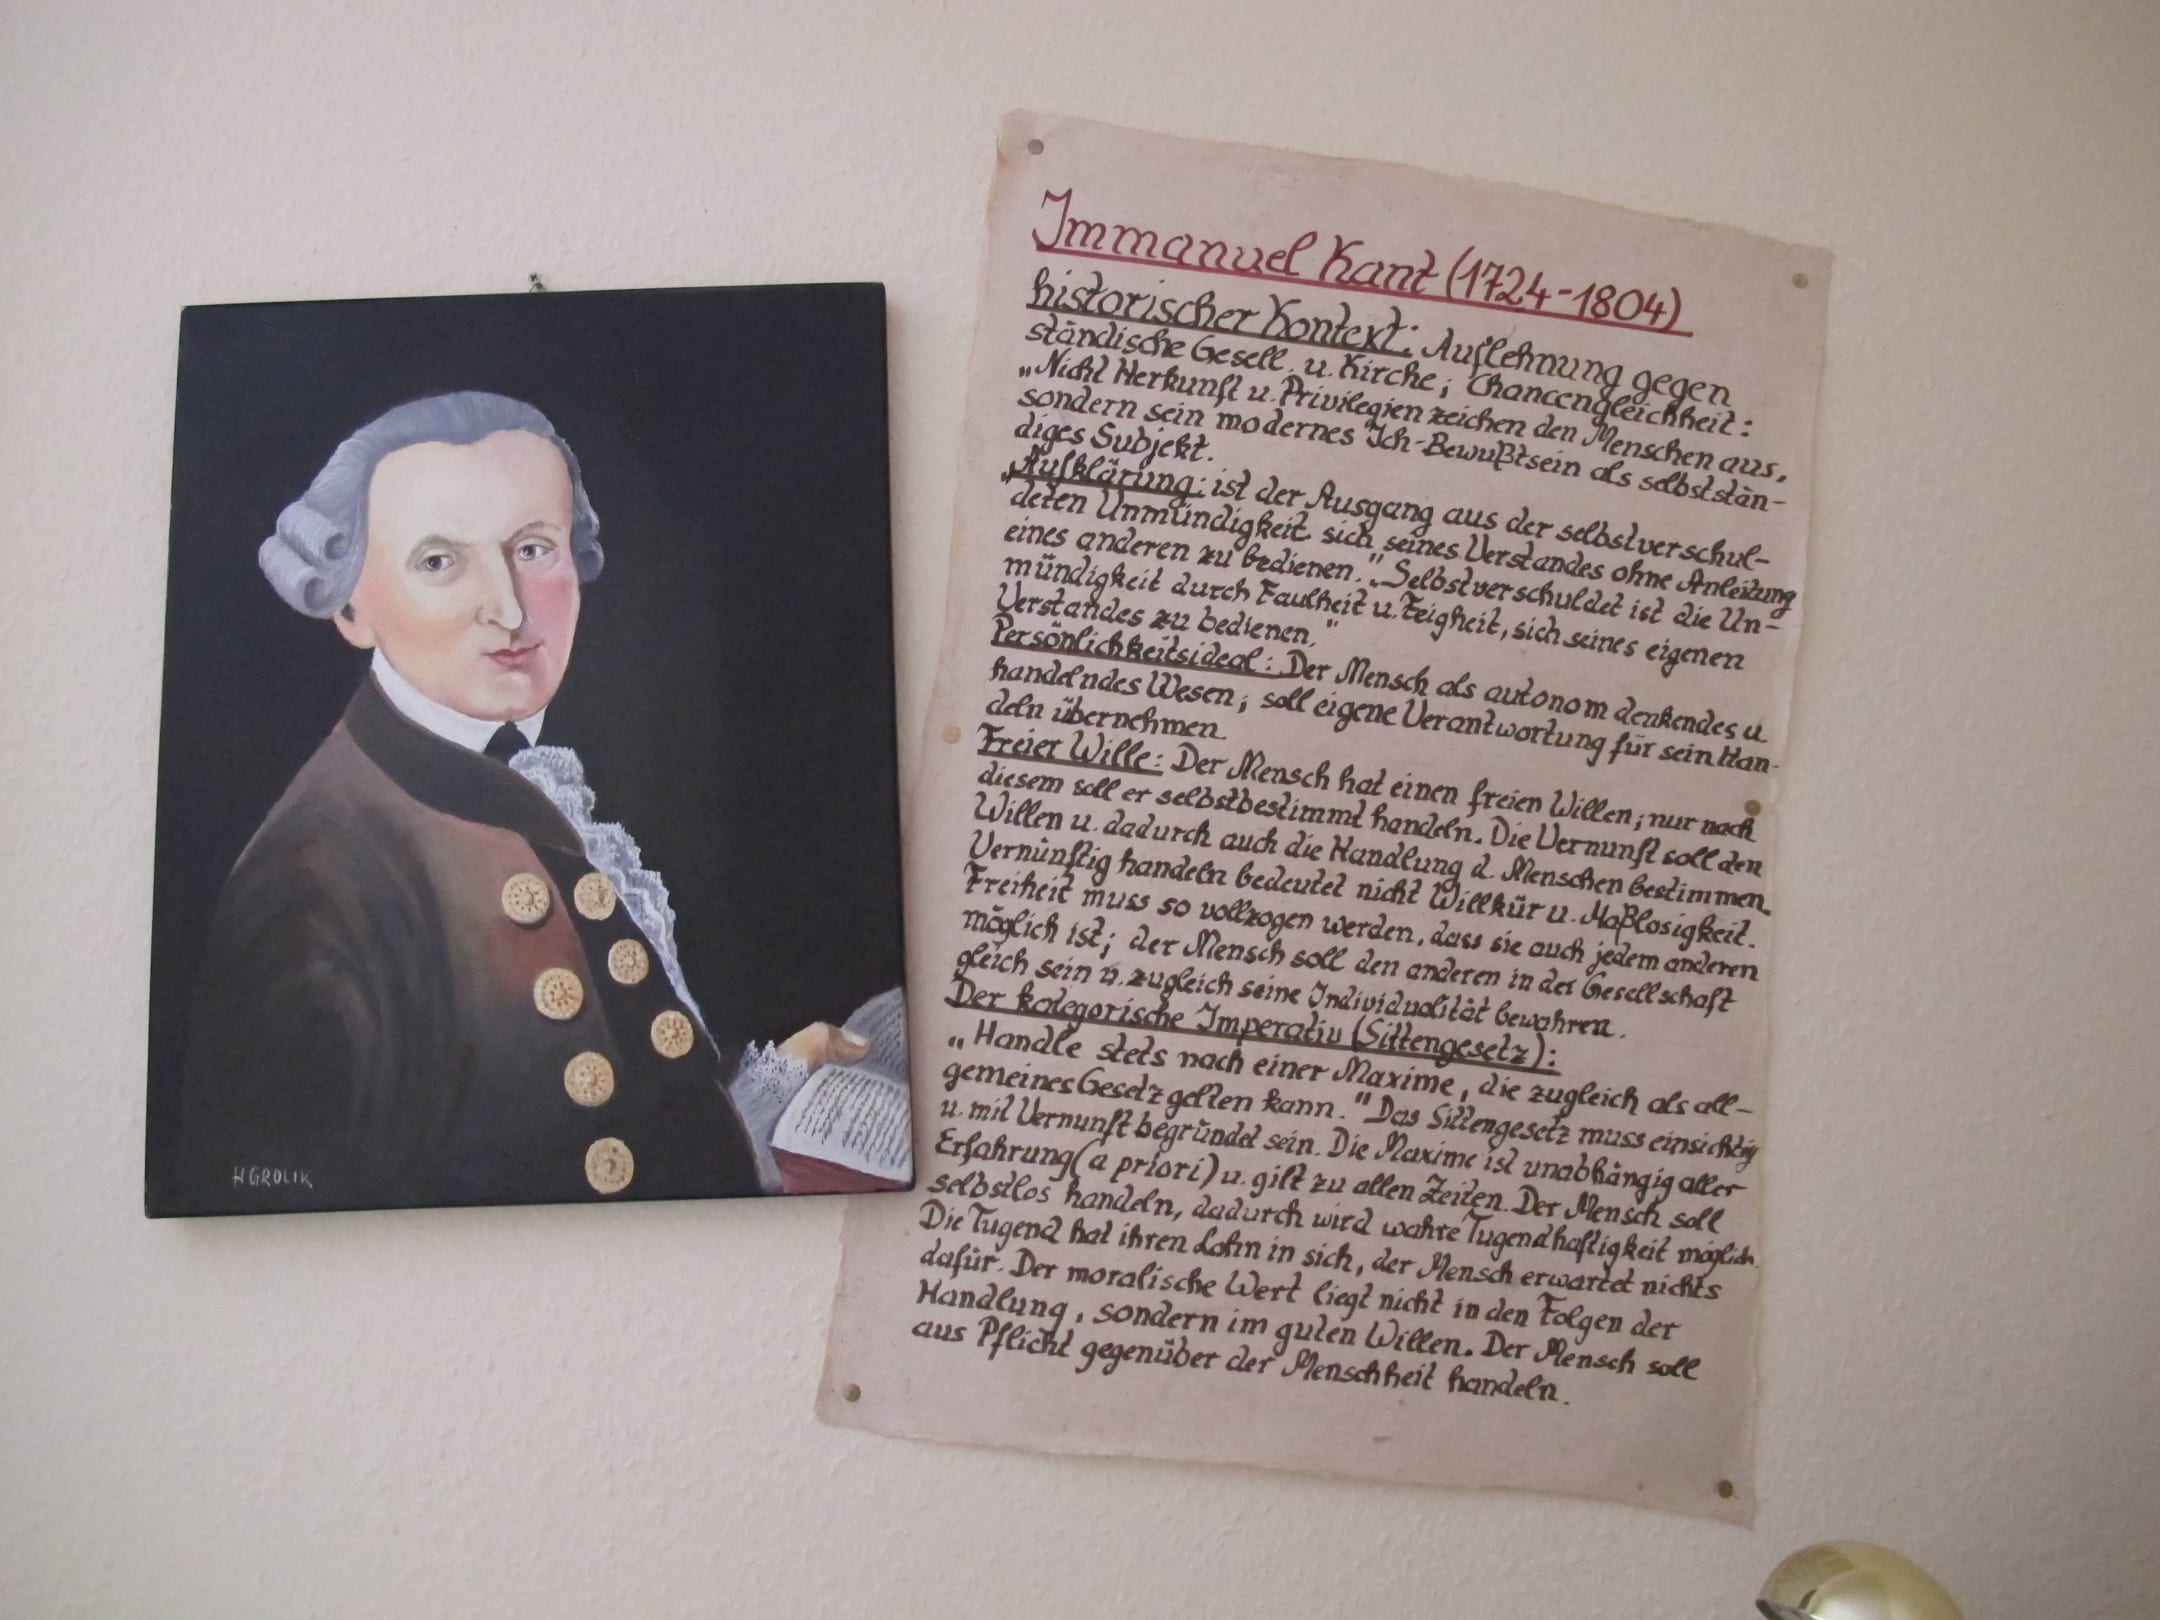 Immanuel Kant (1724-1804)
historischer Kontext: Auflehnung gegen
ständische Gesell. u. Kirche; Chancengleichheit:
„Nicht Herkunft u. Privilegien zeichen den Menschen aus,
sondern sein modernes Ich-Bewußtsein als selbststän-
diges Subjekt.
„Aufklärung: ist der Ausgang aus der selbstverschul-
deten Unmündigkeit sich seines Verstandes ohne Anleitung
eines anderen zu bedienen." „Selbstverschuldet ist die Un-
mündigkeit durch Faulheit u. Feigheit, sich seines eigenen
Verstandes zu bedienen."
Persönlichkeitsideal: Der Mensch als autonom denkendes u.
handelndes Wesen; soll eigene Verantwortung für sein Han-
deln übernehmen.
Freier Wille: Der Mensch hat einen freien Willen; nur nach
diesem soll er selbstbestimmt handeln. Die Vernunft soll den
Willen u. dadurch auch die Handlung d. Menschen bestimmen.
Vernünftig handeln bedeutet nicht Willkür u. Maßlosigkeit.
Freiheit muss so vollzogen werden, dass sie auch jedem anderen
möglich ist; der Mensch soll den anderen in der Gesellschaft
gleich sein u. zugleich seine Individualität bewahren.
Der kategorische Imperativ (Sittengesetz):
„Handle stets nach einer Maxime, die zugleich als all-
gemeines Gesetz gelten kann." Das Sittengesetz muss einsichtig
u. mit Vernunft begründet sein. Die Maxime ist unabhängig aller
Erfahrung (a priori) u. gilt zu allen Zeiten. Der Mensch soll
selbstlos handeln, dadurch wird wahre Tugendhaftigkeit möglich.
Die Tugend hat ihren Lohn in sich, der Mensch erwartet nichts
dafür. Der moralische Wert liegt nicht in den Folgen der
Handlung, sondern im guten Willen. Der Mensch soll
aus Pflicht gegenüber der Menschheit handeln.
H GROLIK